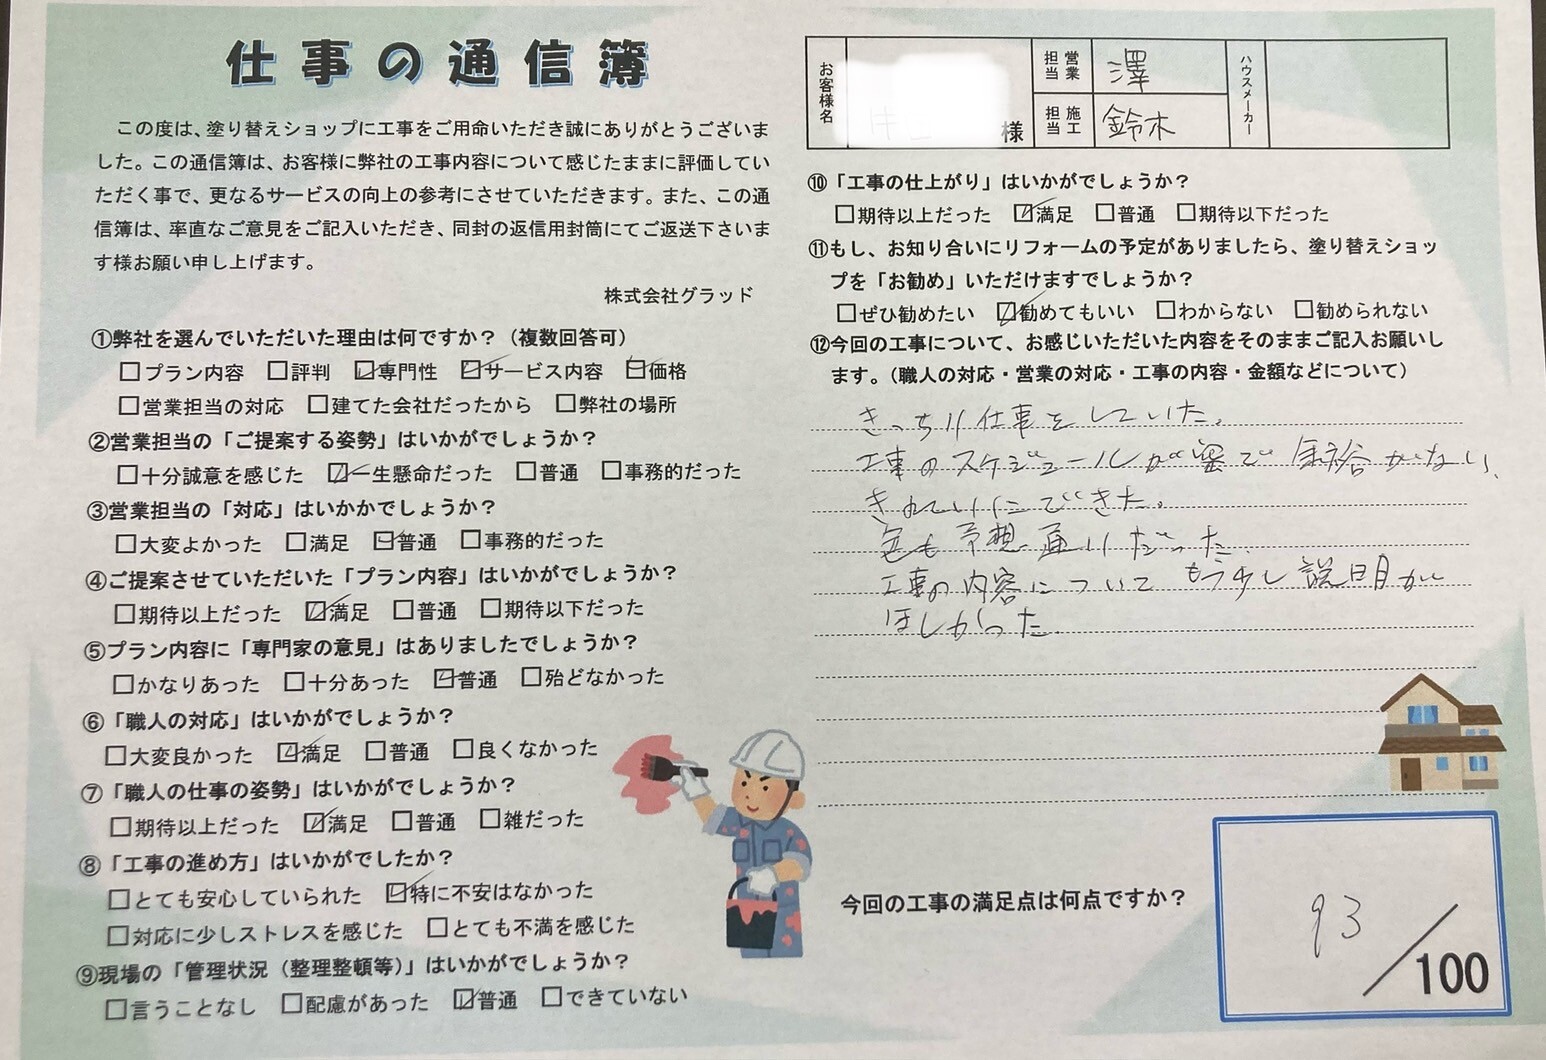 仕事の通信簿
この度は、塗り替えショップに工事をご用命いただき誠にありがとうございま
した。この通信簿は、お客様に弊社の工事内容について感じたままに評価してい
ただく事で、更なるサービスの向上の参考にさせていただきます。また、この通
信簿は、率直なご意見をご記入いただき、同封の返信用封筒にてご返送下さいま
す様お願い申し上げます。
株式会社グラッド
①弊社を選んでいただいた理由は何ですか？（複数回答可）
□プラン内容 □評判 ☑専門性 ☑サービス内容 ☑価格
□営業担当の対応 □建てた会社だったから □弊社の場所
②営業担当の「ご提案する姿勢」はいかがでしょうか？
□十分誠意を感じた ☑一生懸命だった □普通 □事務的だった
③営業担当の「対応」はいかかでしょうか？
□大変よかった □満足 ☑普通 □事務的だった
④ご提案させていただいた「プラン内容」はいかがでしょうか？
□期待以上だった ☑満足 □普通 □期待以下だった
⑤プラン内容に「専門家の意見」はありましたでしょうか？
□かなりあった □十分あった ☑普通 □殆どなかった
⑥「職人の対応」はいかがでしょうか？
□大変良かった ☑満足 □普通 □良くなかった
⑦「職人の仕事の姿勢」はいかがでしょうか？
□期待以上だった ☑満足 □普通 □雑だった
⑧「工事の進め方」はいかがでしたか？
□とても安心していられた ☑特に不安はなかった
□対応に少しストレスを感じた □とても不満を感じた
⑨現場の「管理状況（整理整頓等）」はいかがでしょうか？
□言うことなし □配慮があった ☑普通 □できていない
お客様名 様 営業担当 澤 ハウスメーカー
施工担当 鈴木
⑩「工事の仕上がり」はいかがでしょうか？
□期待以上だった ☑満足 □普通 □期待以下だった
⑪もし、お知り合いにリフォームの予定がありましたら、塗り替えショッ
プを「お勧め」いただけますでしょうか？
□ぜひ勧めたい ☑勧めてもいい □わからない □勧められない
⑫今回の工事について、お感じいただいた内容をそのままご記入お願いし
ます。（職人の対応・営業の対応・工事の内容・金額などについて）
きっちり仕事をしていた。
工事のスケジュールが密で余裕がない、
きれいにできた。
色も予想通りだった。
工事の内容についてもう少し説明が
ほしかった。
今回の工事の満足点は何点ですか？
93／100